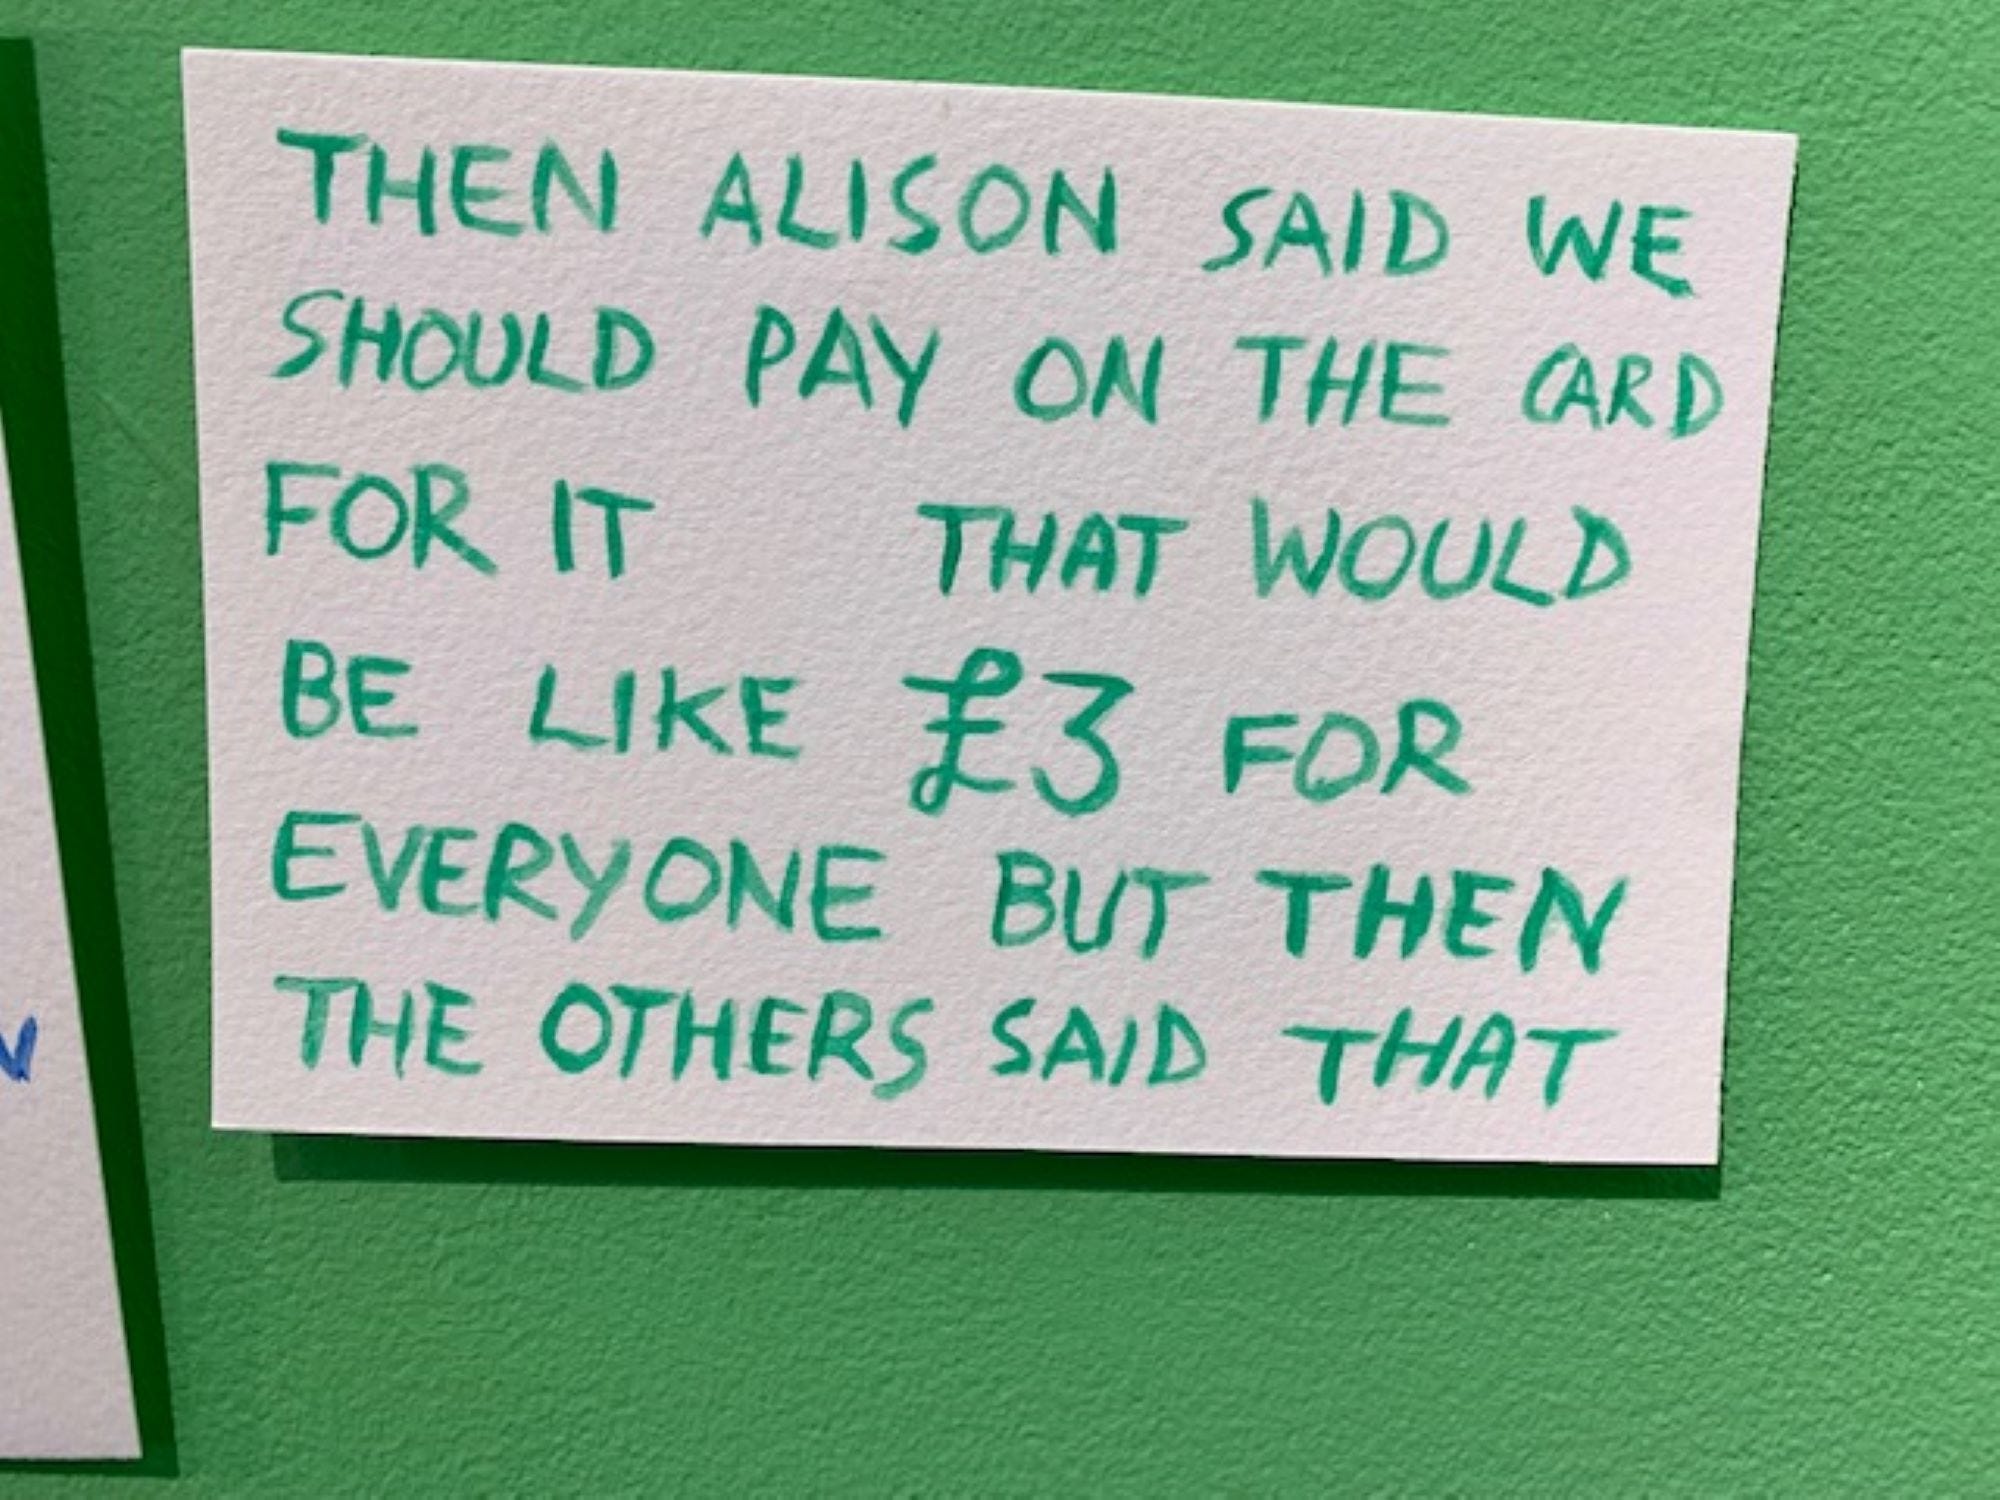 THEN ALISON SAID WE
SHOULD PAY ON THE CARD
FOR IT THAT WOULD
BE LIKE £3 FOR
EVERYONE BUT THEN
THE OTHERS SAID THAT